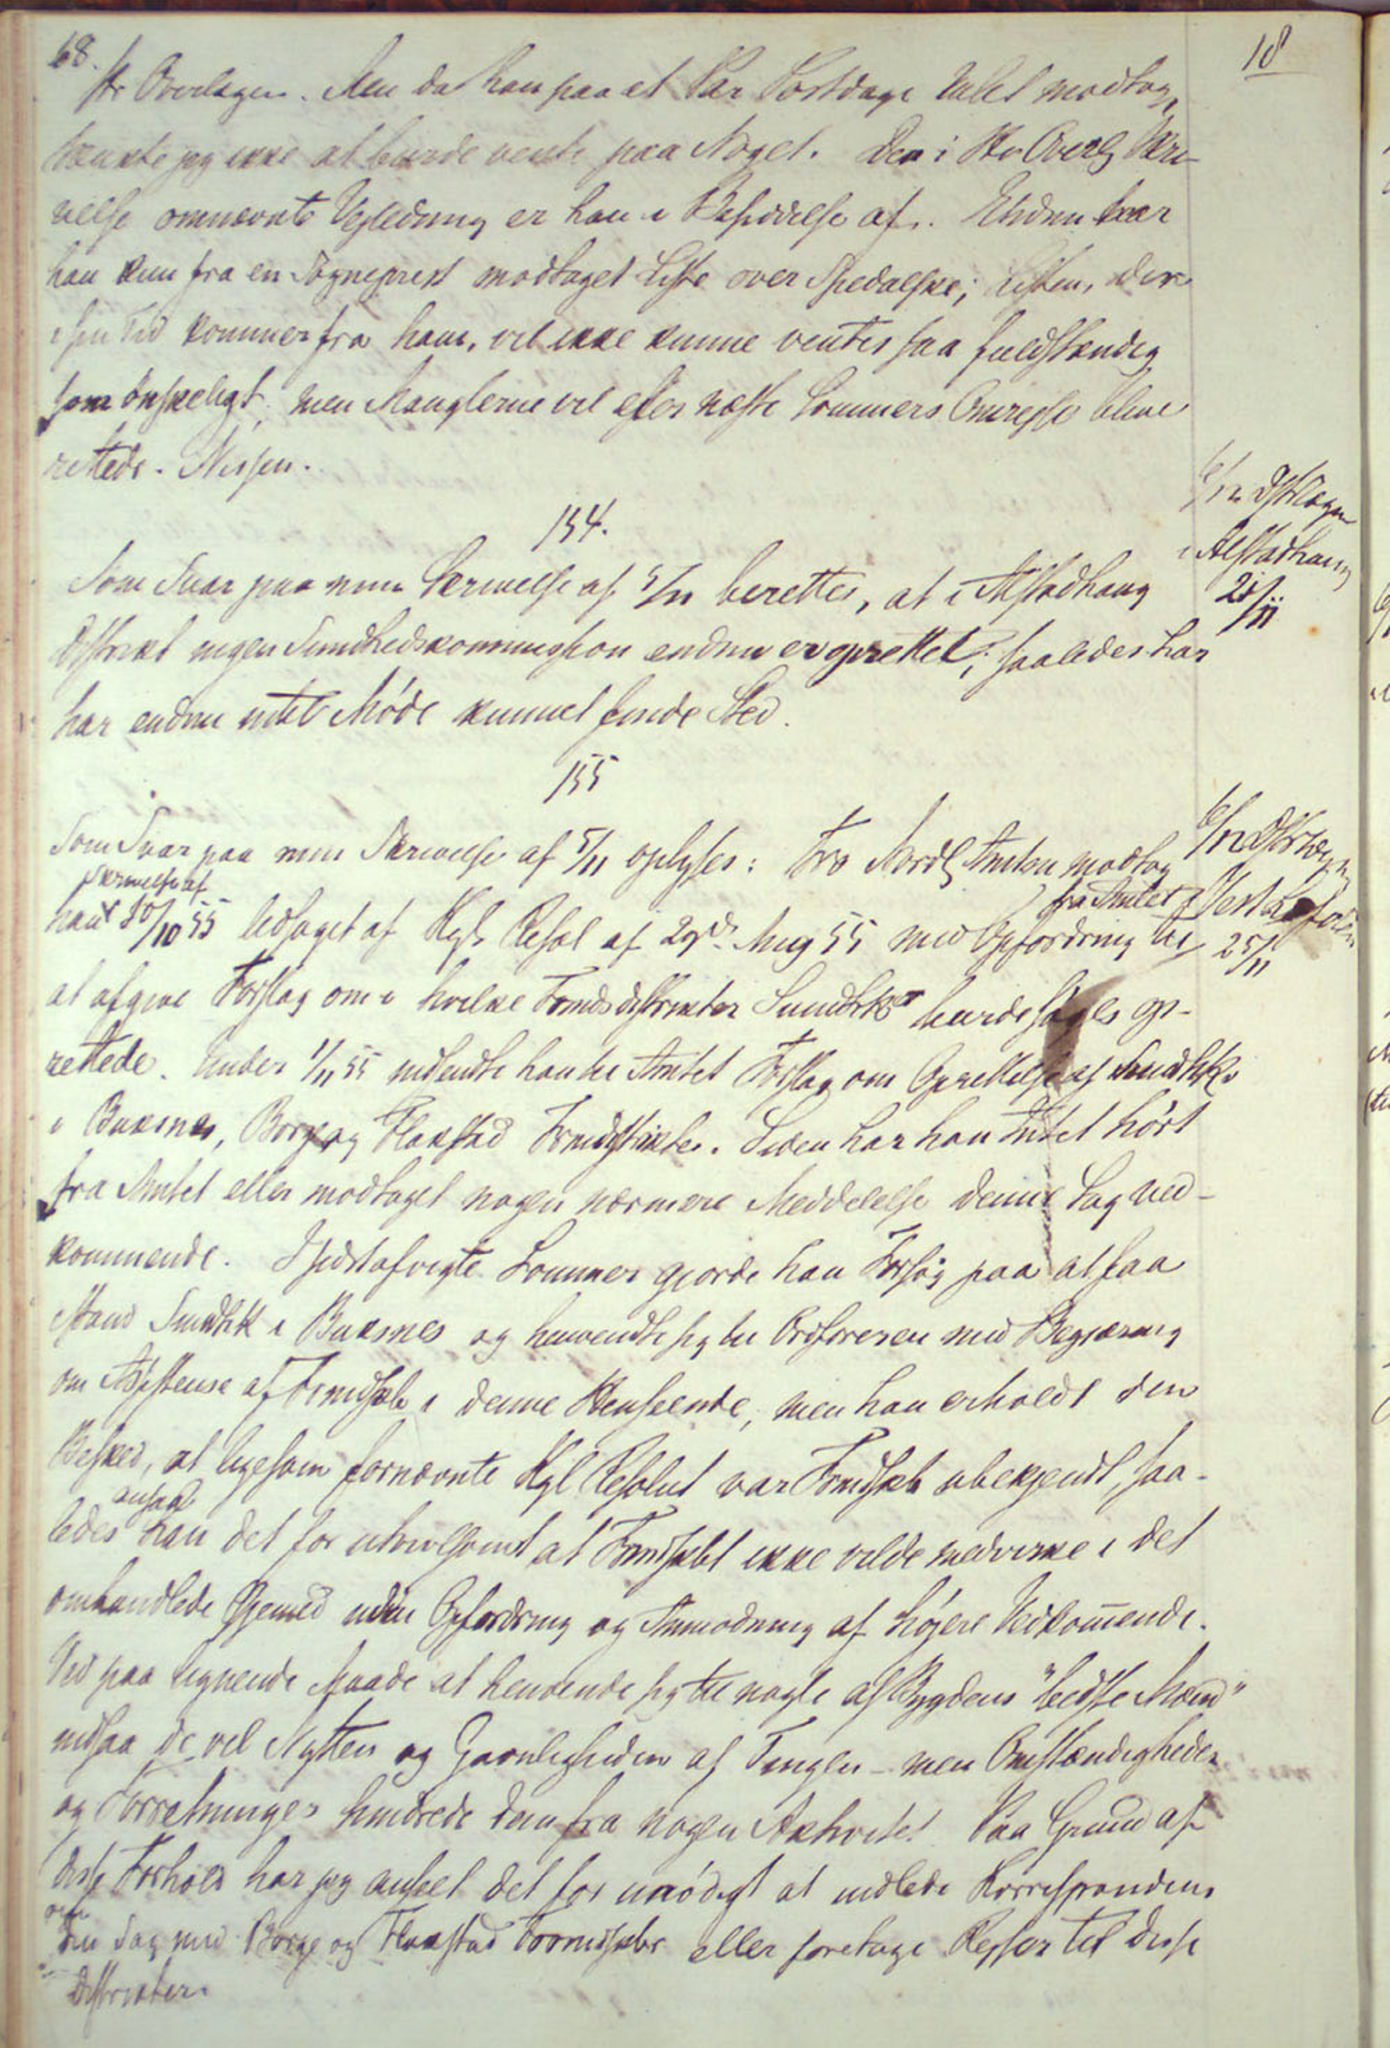 68.
18
Hr Overlægen. Men da han paa et Par Postdage Intet modtog,
tænkte jeg ikke at burde vente paa Noget. Den i Hr Overlg Skri-
velse omnævnte Vejledning er han i Besiddelse af. Endnu har
han kun fra en Sogneprest modtaget Liste over Spedalske; Listen, der
i sin Tid kommer fra ham, vil ikke kunne ventes saa fuldstændig
som ønskeligt, men Manglerne vil efter næste Sommers Omrejse blive
rettede. Nissen.
154.
6/12 Dstrlægen
i Alstadhaug
20/11
Som Svar paa min Skrivelse af 5/11 berettes, at i Alstadhaug
Distrikt ingen Sundhedskommission endnu er oprettet; saaledes har
har endnu intet Møde kunnet finde Sted.
155
6/12 Dstrlægen
i Vest Lofoten
25/11
Som Svar paa min Skrivelse af 5/11 oplyses: Fra Nordl Amten modtog
Skrivelse af
han 30/10 55 ledsaget af Kgl. Resol af 29de Aug 55 med Opfordring fra Amtet til
at afgive Forslag om i hvilke Formdsdistrikter Sundhk burde søges op-
rettede. Under 1/11 55 indsendte han til Amtet Forslag om Oprettelse af Sundhk
i Buxnes, Borge og Flakstad Formdistrikter. Siden har han Intet hørt
fra Amtet eller modtaget nogen nærmere Meddelelse denne Sag ved-
kommende. I sidstafvigte Sommer gjorde han Forsøg paa at faa
istand Sundhk i Buxnes og henvendte sig til Ordføreren med Begjæring
om Assistense af Formdskb i denne Henseende, men han erholdt den
Besked, at ligesom fornævnte Kgl Resolut var Formdskb ubekjendt, saa-
ledes ansaae han det for utvivlsomt at Formdskbt ikke vilde medvirke i det
omhandlede Øjemed uden Opfordring og Anmodning af højere Vedkommende.
Ved paa lignende Maade at henvende sig til nogle af Bygdens "bedste Mænd"
indsaa de vel Nytten og Gavnligheden af Tingen – men Omstændigheder
og Forretninger hindrede dem fra nogen Aktivitet. Paa Grund af
disse Forhold har jeg anseet det for unødigt at indlede Korrespondens
om
den Sag med Borge og Flakstad Formdskbr eller foretage Rejser til disse
Distrikter.